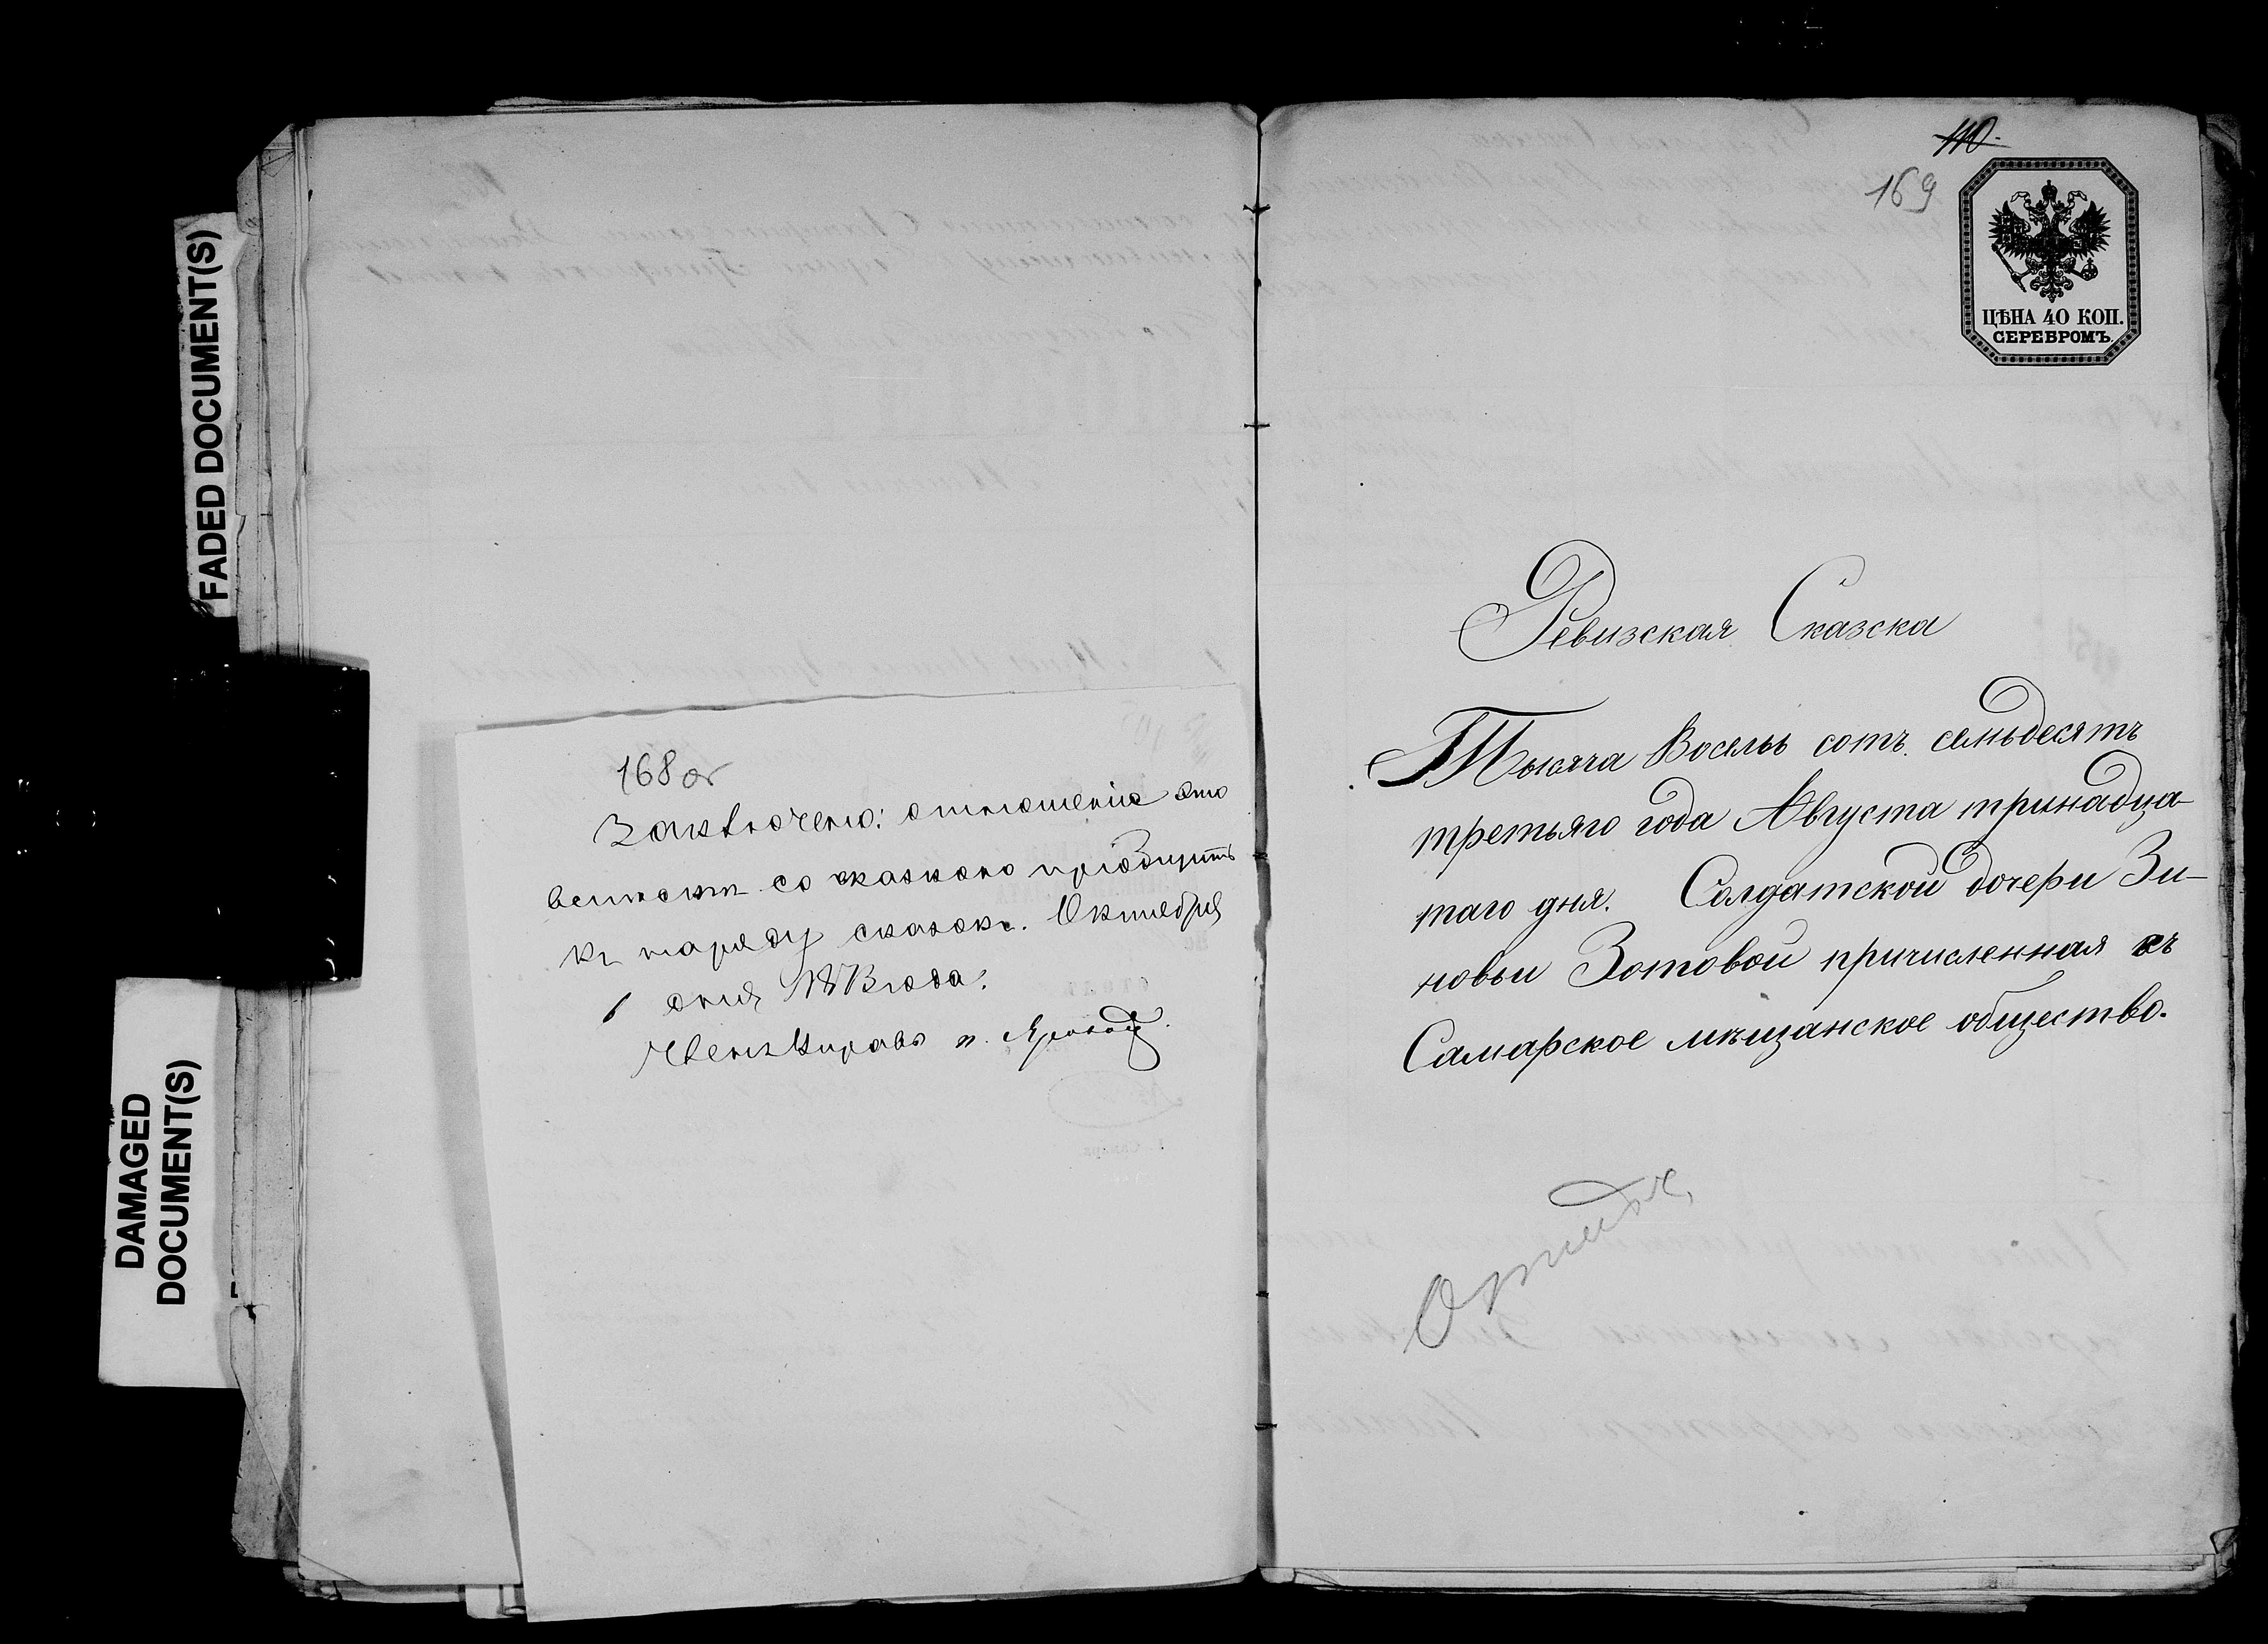 FADED DOCUMENT(S)
DAMAGED
DOCUMENT(S)
168 об
Заключено: отношение это
вместѣ со сказкою пріобщить
къ наряду сказокъ. Октября
1 дня 1873 года.
Членъ Управы
110.
169
ЦѢНА 40 КОП.
СЕРЕБРОМЪ.
Ревизская Сказска
Тысяча Восемь сотъ семьдесятъ
третьяго года Августа тринадца-
таго дня. Солдатской дочери Зи-
новьи Зотовой причисленная въ
Самарское мѣщанское общество.